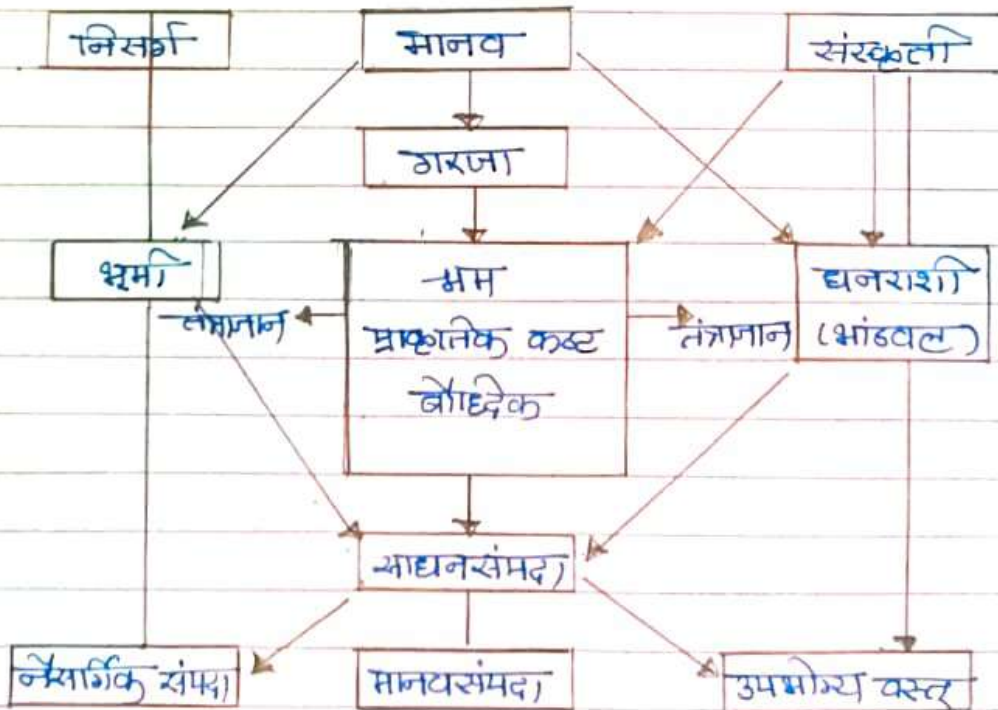 निसर्ग
मानव
संस्कृती
गरजा
भूमी
श्रम
प्राकृतिक कष्ट
बौध्दिक
तंत्रज्ञान
तंत्रज्ञान
धनराशी
(भांडवल)
साधनसंपदा
नैसर्गिक संपदा
मानवसंपदा
उपभोग्य वस्तू